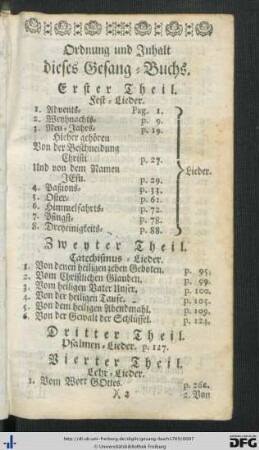 Ordnung und Inhalt
dieses Gesang-Buchs.
Erster Theil.
Fest-Lieder.
1. Advents- Pag. 1.
2. Weyhnachts- p. 9.
3. Neu-Jahrs- p. 19.
Hieher gehören
Von der Beschneidung
Christi p. 27.
Und von dem Namen Lieder.
JEsu. p. 29.
4. Paßions- p. 33.
5. Oster- p. 61.
6. Himmelfahrts- p. 72.
7. Pfingst- p. 78.
8. Dreyeinigkeits- p. 88.
Zweyter Theil.
Catechismus-Lieder.
1. Von denen heiligen zehen Geboten. p. 95.
2. Vom Christlichen Glauben. p. 99.
3. Vom heiligen Vater Unser. p. 100.
4. Von der heiligen Taufe. p. 105.
5. Von dem heiligen Abendmahl. p. 109.
6. Von der Gewalt der Schlüssel. p. 124.
Dritter Theil.
Psalmen-Lieder. p. 127.
Vierter Theil.
Lehr-Lieder.
1. Vom Wort GOttes. p. 260.
X 2 2. Von
Bibliothek Freiburg
DFG